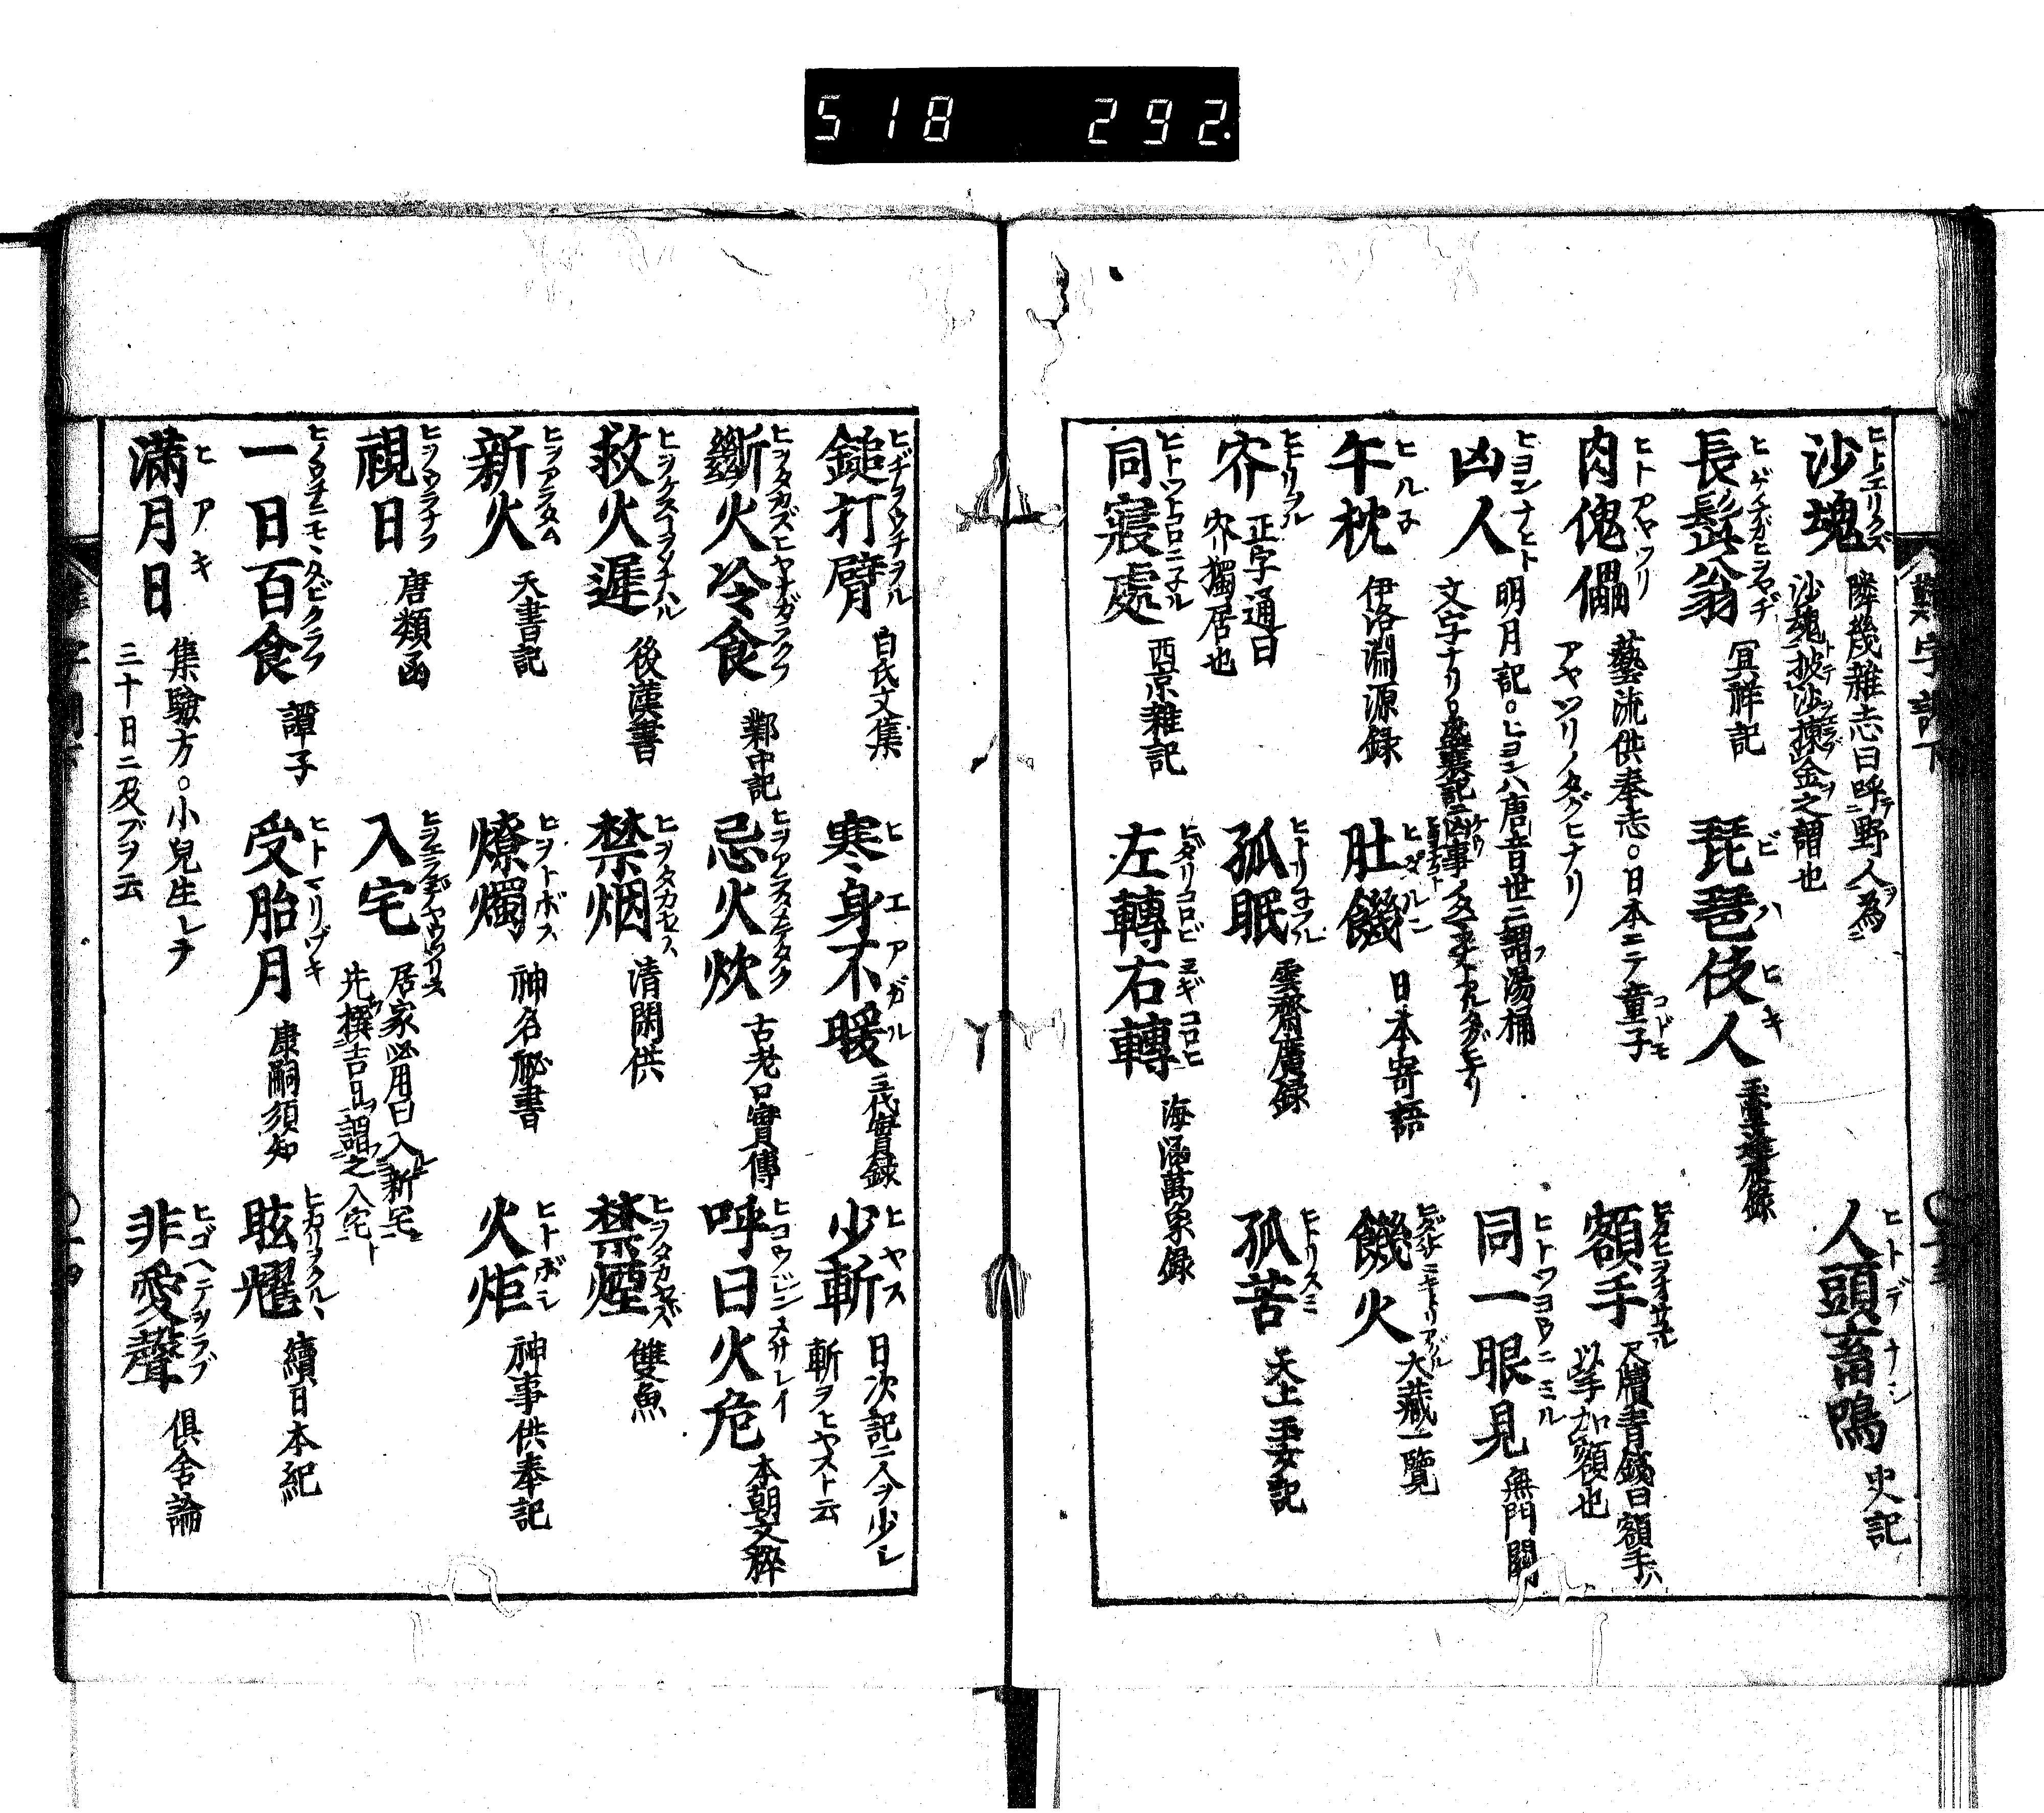 518 292.
難字訓下
沙塊 ヒトエリクズ 隣幾雜志曰呼野人為沙塊披沙揀金之謂也
人頭畜鳴 ヒトデナシ 史記
長髯翁 ヒゲナガヒヲヤヂ 冥祥記
琵琶伎人 ビハヒキ
肉傀儡 ヒトアヤツリ 藝流供奉志。日本ニテ童子アヤツリノタグヒナリ
額手 尺牘青錢曰額手ハ以手加額也
凶人 ヒヨンナヒト 明月記。ヒヨンハ唐音世ニ謂フ湯桶文字ナリ。
同一眼見 ヒトツヨウニミル 無門關
午枕 ヒルネ 伊洛淵源録
肚饑 ヒダルシ 日本寄語
饑火 大藏一覽
夰 ヒトリヲル 正字通曰夰獨居也
孤眠 ヒトリネフル 雲齋廣録
孤苦 ヒトリスミ 天上玉女記
同寢處 ヒトツトコロニネル 西京雜記
左轉右轉 ヒダリコロビミギコロヒ 海涵萬象録
鎚打臂 ヒヂヲウチヲル 白氏文集
寒身不暖 ヒエアガル 三代實録
少斬 ヒヤス 日次記ニ人ヲ少シ斬ヲヒヤスト云
斷火冷食 ヒヲタカズヒヤナガラクフ 鄴中記
忌火炊 古老口實傳
呼曰火危 ヒコウジンメサレイ 本朝文粹
救火遲 後漢書
禁烟 ヒヲタカセス 清閑供
禁煙 ヒヲタカセズ 雙魚
新火 ヒヲアラタム 天書記
燎燭 ヒヲトボス 神名秘書
火炬 ヒトボシ 神事供奉記
視日 ヒヲウラナフ 唐類函
入宅 居家必用曰入新宅先撰吉日謂之入宅ト
一日百食 ヒノウチニモヽタビクラフ 譚子
受胎月 ヒトマリヅキ 康嗣須知
眩耀 ヒカリヲクルヽ 續日本紀
滿月日 ヒアキ 集驗方。小兒生レテ三十日ニ及ブヲ云
非愛聲 俱舍論